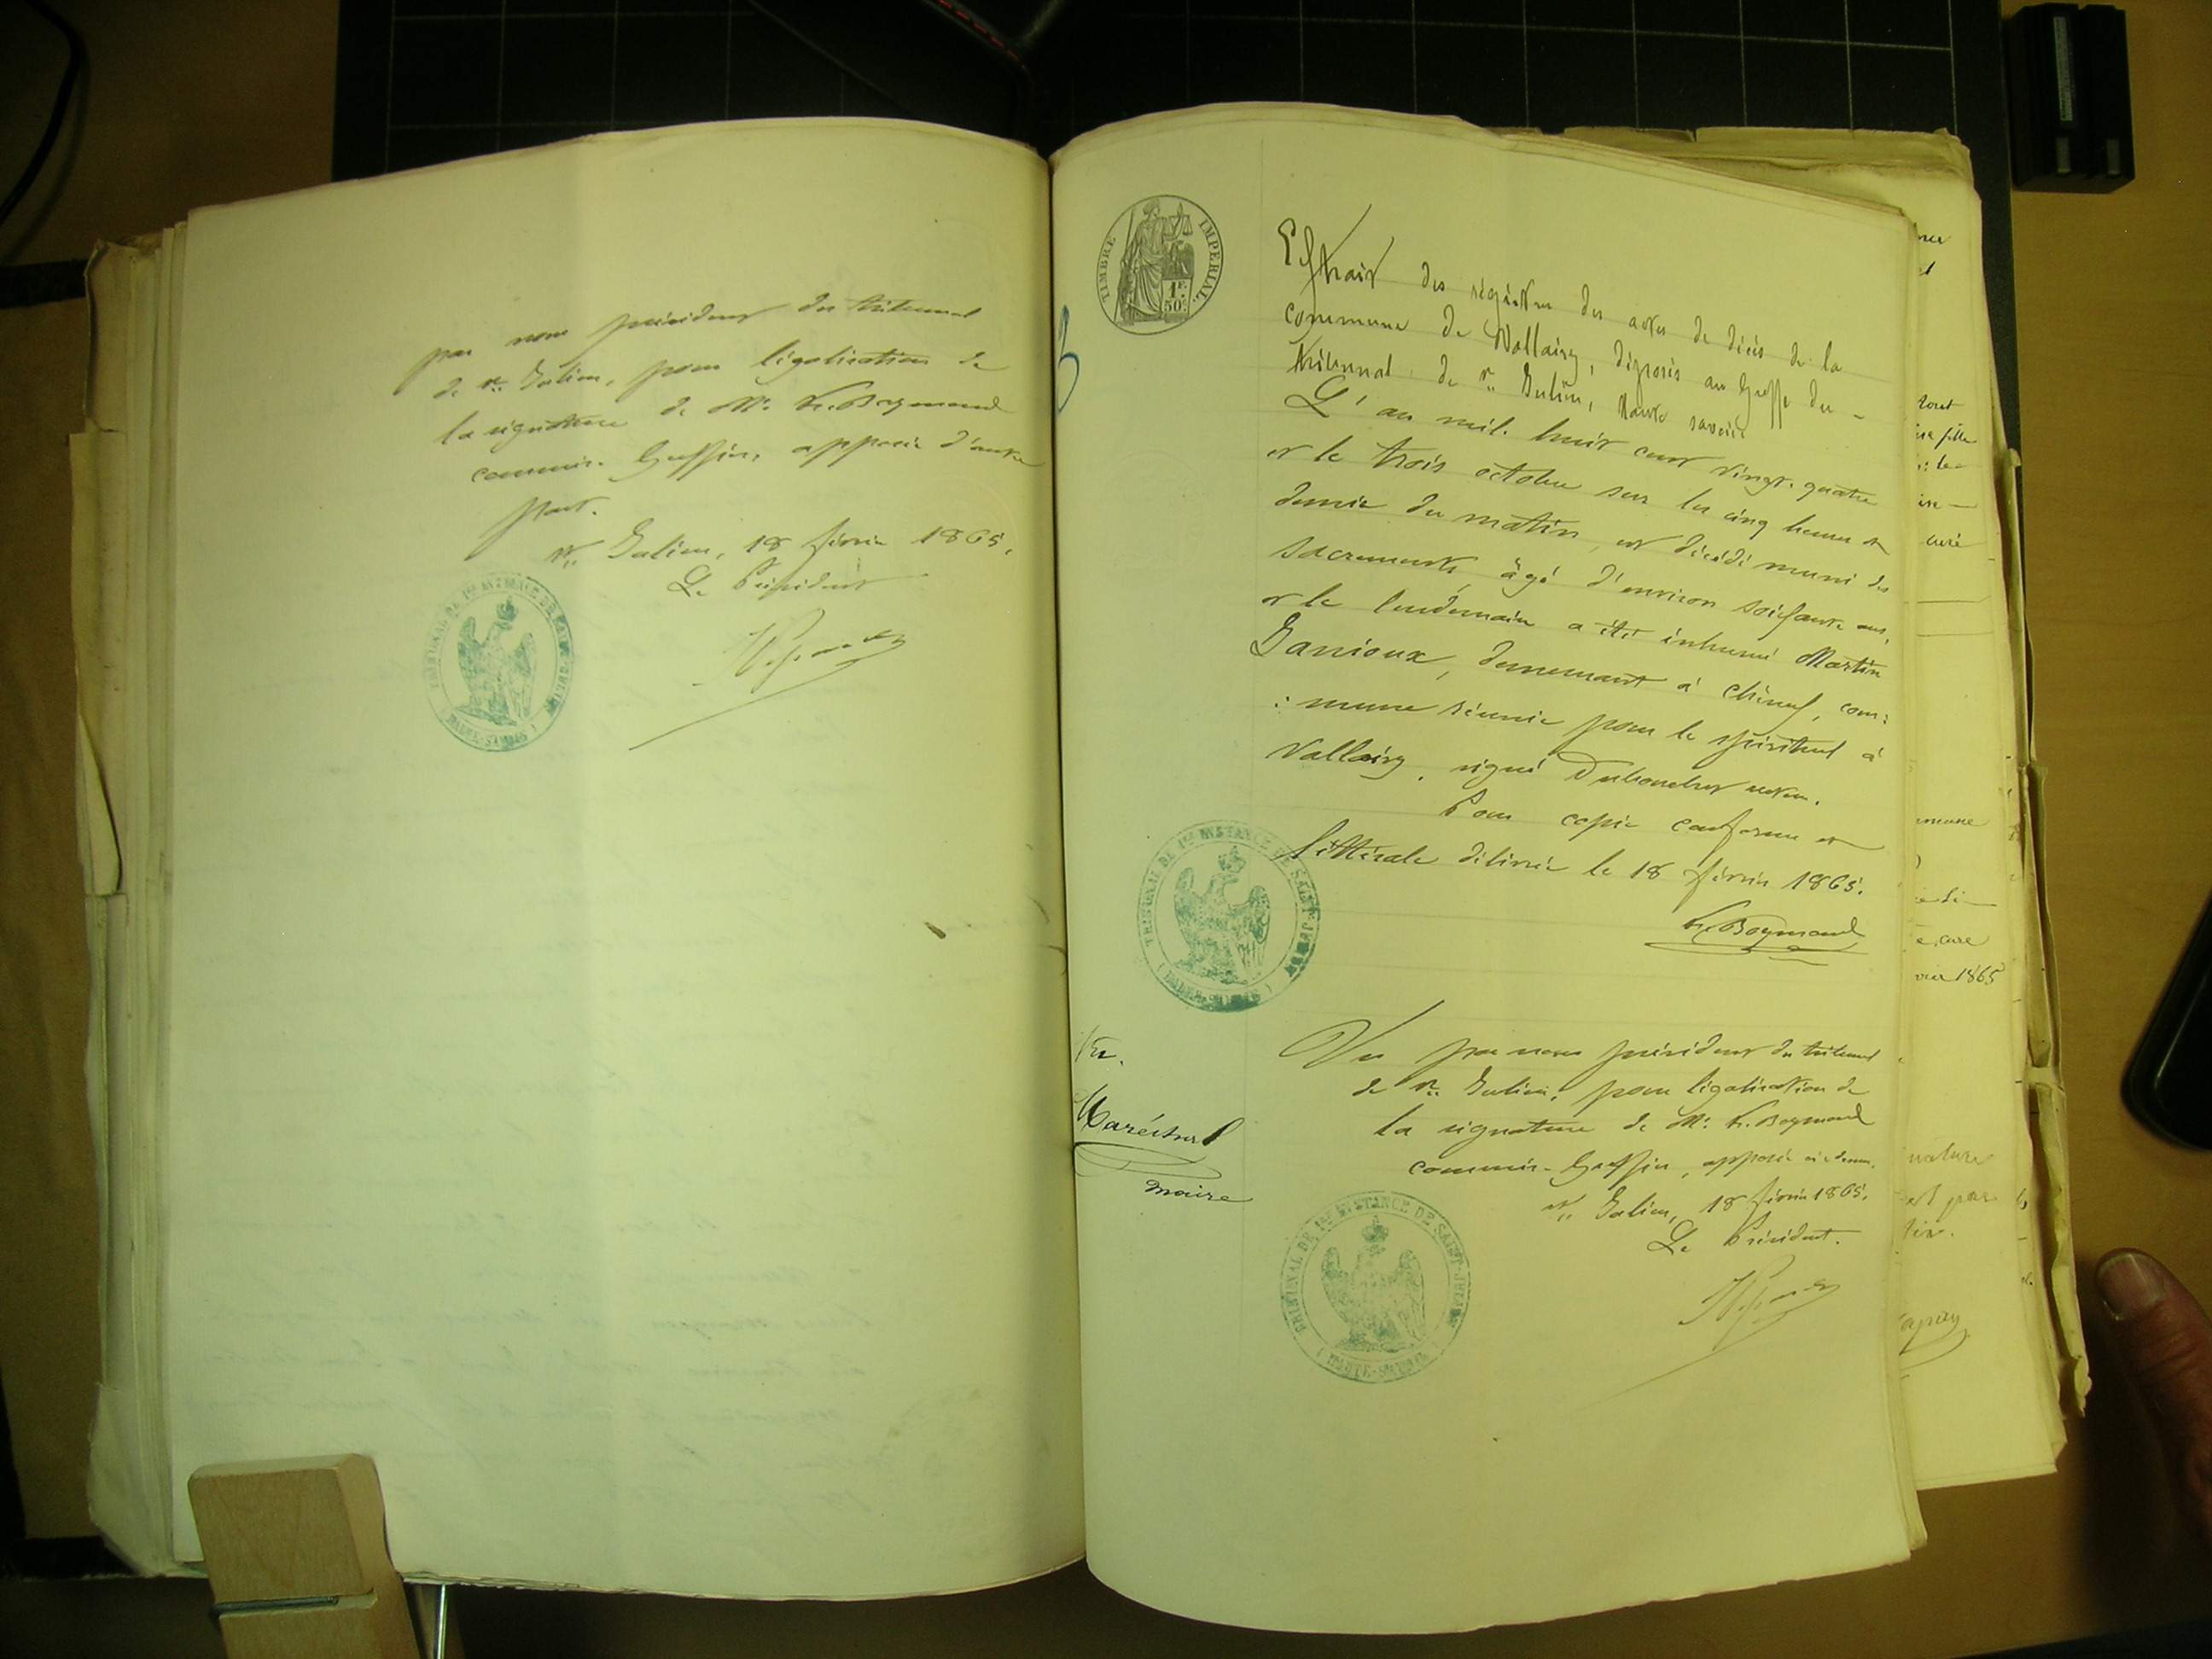 par nous président du tribunal
de St. Julien, pour légalisation de
la signature de Mr. Fr. Boymond
commis-Greffier, apposée d'autre
part.
St. Julien, 18 février 1865.
Le Président
TRIBUNAL DE 1re INSTANCE DE SAINT-JULIEN
(HAUTE-SAVOIE)
TIMBRE IMPERIAL.
1F.
50C.
3
Extrait des registres des actes de décès de la
commune de Valleiry, déposés au Greffe du
tribunal de St. Julien, Haute savoie
L'an mil huit cent vingt-quatre
et le trois octobre sur les cinq heures et
demie du matin, est décédé muni des
sacrements, âgé d'environ soixante ans,
et le lendemain a été inhumé Martin
Janioux, demeurant à chênex, com:
:mune réunie pour le spirituel à
Valleiry, signé Dubouchet recteur.
Pour copie conforme et
littérale délivrée le 18 février 1865.
Fr. Boymond
TRIBUNAL DE 1re INSTANCE DE SAINT-JULIEN
(HAUTE-SAVOIE)
Vu.
Maréchal
maire
Vu par nous président du tribunal
de St. Julien, pour légalisation de
la signature de Mr. Fr. Boymond
commis-Greffier, apposée ci-dessus.
St. Julien, 18 février 1865.
Le Président.
TRIBUNAL DE 1re INSTANCE DE SAINT-JULIEN
(HAUTE-SAVOIE)